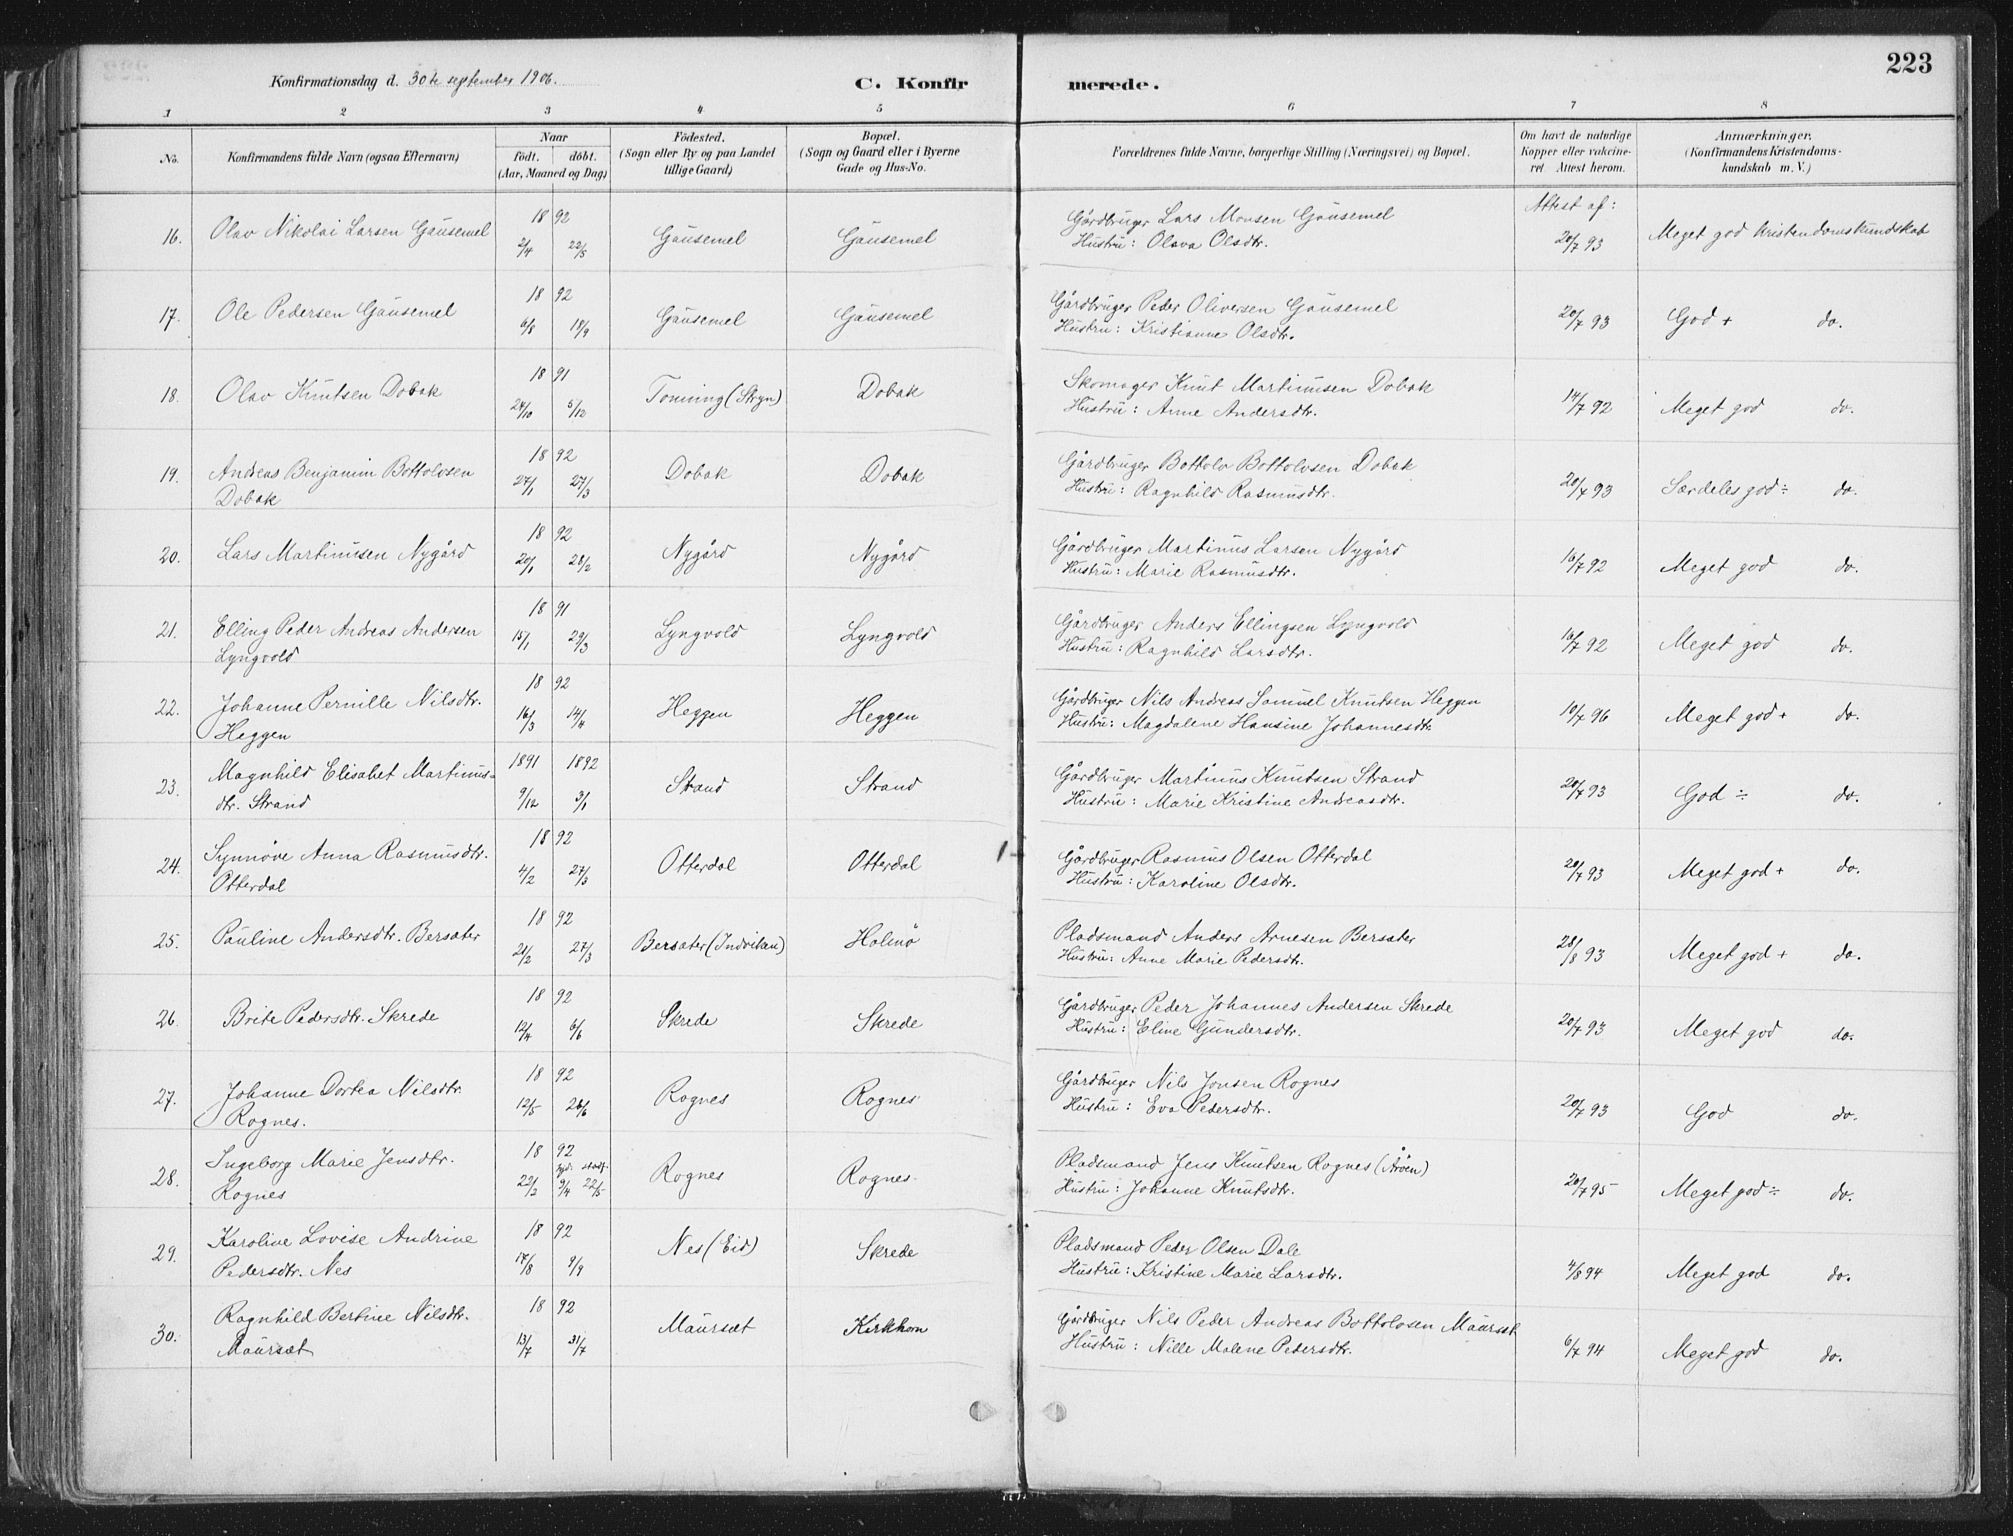 223
Konfirmationsdag d. 30te september 1906.
C. Konfirmerede.
1 2 3 4 5 6 7 8
No.
Konfirmandens fulde Navn (ogsaa Efternavn)
Naar
födt. döbt.
(Aar, Maaned og Dag)
Födested.
(Sogn eller By og paa Landet
tillige Gaard)
Bopæl.
(Sogn og Gaard eller i Byerne
Gade og Hus-No.
Forældrenes fulde Navne, borgerlige Stilling (Næringsvei) og Bopæl.
Om havt de naturlige
Kopper eller vakcine-
ret Attest herom.
Anmærkninger.
(Konfirmandens Kristendoms-
kundskab m. V.)
Attest af:
16. Olav Nikolai Larsen Gausemel 1892 2/4 22/5 Gausemel Gausemel Gårdbruger Lars Monsen Gausemel
Hustru: Olava Olsdtr. 20/7 93 Meget god kristendomskundskab
17. Ole Pedersen Gausemel 1892 6/8 18/9 Gausemel Gausemel Gårdbruger Peder Oliversen Gausemel
Hustru: Kristianne Olsdtr. 20/7 93 God + do.
18. Olav Knutsen Dobak 1891 24/10 5/12 Tonning (Stryn) Dobak Skomager Knut Martinusen Dobak
Hustru: Anne Andersdtr. 14/7 92 Meget god do.
19. Andreas Benjamin Bottolvsen
Dobak 1892 27/1 27/3 Dobak Dobak Gårdbruger Bottolv Bottolvsen Dobak
Hustru: Ragnhild Rasmusdtr. 20/7 93 Særdeles god ÷ do.
20. Lars Martinusen Nygård 1892 20/1 28/2 Nygård Nygård Gårdbruger Martinus Larsen Nygård
Hustru: Marie Rasmusdtr. 16/7 92 Meget god do.
21. Elling Peder Andreas Andersen
Lyngvold 1891 15/1 29/3 Lyngvold Lyngvold Gårdbruger Anders Ellingsen Lyngvold
Hustru: Ragnhild Larsdtr. 16/7 92 Meget god do.
22. Johanne Pernille Nilsdtr.
Heggen 1892 16/3 14/4 Heggen Heggen Gårdbruger Nils Andreas Samuel Knutsen Heggen
Hustru: Magdalene Hansine Johannesdtr. 10/7 96 Meget god + do.
23. Magnhild Elisabet Martinus-
dtr. Strand 1891 1892 9/12 3/1 Strand Strand Gårdbruger Martinus Knutsen Strand
Hustru: Marie Kristine Andreasdtr. 20/7 93 God ÷ do.
24. Synnöve Anna Rasmusdtr.
Otterdal 1892 4/2 27/3 Otterdal Otterdal Gårdbruger Rasmus Olsen Otterdal
Hustru: Karoline Olsdtr. 20/7 93 Meget god + do.
25. Pauline Andersdtr. Bersæter 1892 21/2 27/3 Bersæter (Indviken) Holmö Pladsmand Anders Arnesen Bersæter
Hustru: Anne Marie Pedersdtr. 28/8 93 Meget god + do.
26. Brite Pedersdtr. Skrede 1892 12/4 6/6 Skrede Skrede Gårdbruger Peder Johannes Andersen Skrede
Hustru: Eline Gundersdtr. 20/7 93 Meget god do.
27. Johanne Dortea Nilsdtr.
Rognes. 1892 12/5 26/6 Rognes Rognes Gårdbruger Nils Jonsen Rognes
Hustru: Eva Pedersdtr. 20/7 93 God do.
28. Ingeborg Marie Jensdtr.
Rognes 1892 22/2 9/4 22/5 Rognes Rognes. Pladsmand Jens Knutsen Rognes (Åröen)
Hustru: Johanne Knutsdtr. 20/7 95 Meget god ÷ do.
29. Karoline Lovise Andrine
Pedersdtr. Nes 1892 17/8 9/9 Nes (Eid) Skrede Pladsmand Peder Olsen Dale
Hustru: Kristine Marie Larsdtr. 4/8 94 Meget god do.
30. Ragnhild Bertine Nilsdtr.
Maursæt 1892 13/7 31/7 Maursæt Kirkhorn Gårdbruger Nils Peder Andreas Bottolvsen Maursæt
Hustru: Nille Malene Pedersdtr. 6/7 94 Meget god do.